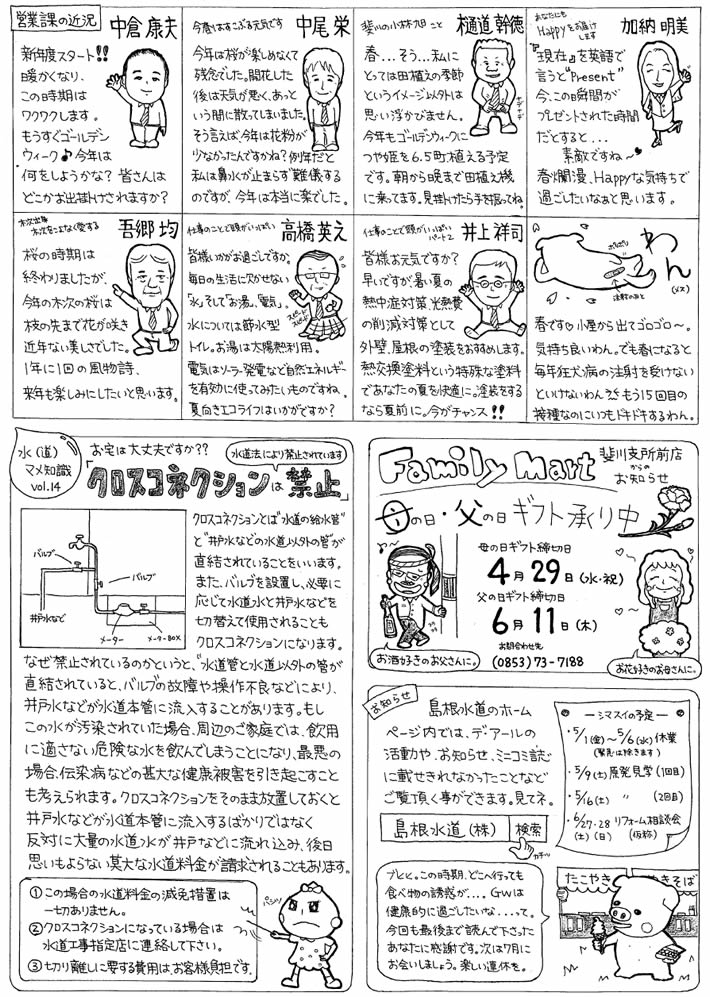 営業課の近況
中倉 康夫
新年度スタート!!
暖かくなり、
この時期は
ワクワクします。
もうすぐゴールデン
ウィーク♪今年は
何をしようかな? 皆さんは
どこかお出掛けされますか?
今春はすこぶる元気です
中尾 栄
今年は桜が楽しめなくて
残念でした。開花した
後は天気が悪く、あっと
いう間に散ってしまいました。
そう言えば、今年は花粉が
少なかったんですかね?例年だと
私は鼻水が止まらず難儀する
のですが、今年は本当に楽でした。
斐川の小林旭 こと
樋道 幹徳
春…そう…私に
とっては田植えの季節
というイメージ以外は
思い浮かびません。
今年もゴールデンウィークに
つや姫を6.5町植える予定
です。朝から晩まで田植え機
に乗ってます。見掛けたら手を振ってね。
あなたにも
Happyをお届け
します
加納 明美
『現在』を英語で
言うと“Present”
今、この瞬間が
プレゼントされた時間
だとすると…
素敵ですね~
春爛漫、Happyな気持ちで
過ごしたいなぁと思います。
木次出身
木次をこよなく愛する
吾郷 均
桜の時期は
終わりましたが、
今年の木次の桜は
枝の先まで花が咲き
近年ない美しさでした。
1年に1回の風物詩、
来年も楽しみにしたいと思います。
仕事のことで頭がいっぱい
高橋 英え
皆様いかがお過ごしですか。
毎日の生活に欠かせない
「水」そして「お湯」、「電気」。
水については節水型
トイレ。お湯は太陽熱利用。
電気はソーラー発電など自然エネルギー
を有効に使ってみたいものですね。
夏向きエコライフはいかがですか?
仕事のことで頭がいっぱい
パート2
井上 祥司
皆様お元気ですか?
早いですが暑い夏の
熱中症対策、光熱費
の削減対策として
外壁、屋根の塗装をおすすめします。
熱交換塗料という特殊な塗料
であなたの夏を快適に。塗装をする
なら夏前に。今がチャンス!!
わん
(メス)
ポリポリ
注射のあと
春です♡小屋から出てゴロゴロ~。
気持ち良いわん。でも春になると
毎年狂犬病の注射を受けない
といけないわん もう15回目の
接種なのにいつもドキドキするわん。
水(道)
マメ知識
vol.14
お宅は大丈夫ですか??
水道法により禁止されています
「クロスコネクションは禁止」
バルブ
バルブ
井戸水など
メーター
メーターBOX
クロスコネクションとは“水道の給水管”
と“井戸水などの水道以外の管”が
直結されていることをいいます。
また、バルブを設置し、必要に
応じて水道水と井戸水などを
切替えて使用されることも
クロスコネクションになります。
なぜ禁止されているのかというと、“水道管と水道以外の管が
直結されていると、バルブの故障や操作不良などにより、
井戸水などが水道本管に流入することがあります。もし
この水が汚染されていた場合、周辺のご家庭では、飲用
に適さない危険な水を飲んでしまうことになり、最悪の
場合、伝染病などの甚大な健康被害を引き起こすこと
も考えられます。クロスコネクションをそのまま放置しておくと
井戸水などが水道本管に流入するばかりではなく
反対に大量の水道水が井戸などに流れ込み、後日
思いもよらない莫大な水道料金が請求されることもあります。
①この場合の水道料金の減免措置は
一切ありません。
②クロスコネクションになっている場合は
水道工事指定店に連絡して下さい。
③切り離しに要する費用は、お客様負担です。
Family Mart
斐川支所前店
からの
お知らせ
母の日・父の日ギフト承り中
母の日ギフト締切日
4月29日(水・祝)
父の日ギフト締切日
6月11日(木)
お問合わせ先
(0853)73-7188
お酒好きのお父さんに。
お花好きのお母さんに。
お知らせ
島根水道のホーム
ページ内では、デアールの
活動や、お知らせ、ミニコミ誌
に載せきれなかったことなど
ご覧頂く事ができます。見てネ。
島根水道(株) 検索
カチッ
ーシマスイの予定ー
・5/1(金)~5/6(水)休業
(緊急は除きます)
・5/9(土)原発見学(1回目)
・5/16(土) 〃 (2回目)
・6/27・28 リフォーム相談会
(土)(日) (仮称)
プヒヒ。この時期、どこへ行っても
食べ物の誘惑が…。GWは
健康的に過ごしたいな…って。
今回も最後まで読んで下さった
あなたに感謝です。次は7月に
お会いしましょう。楽しい連休を。
たこやき
やきそば